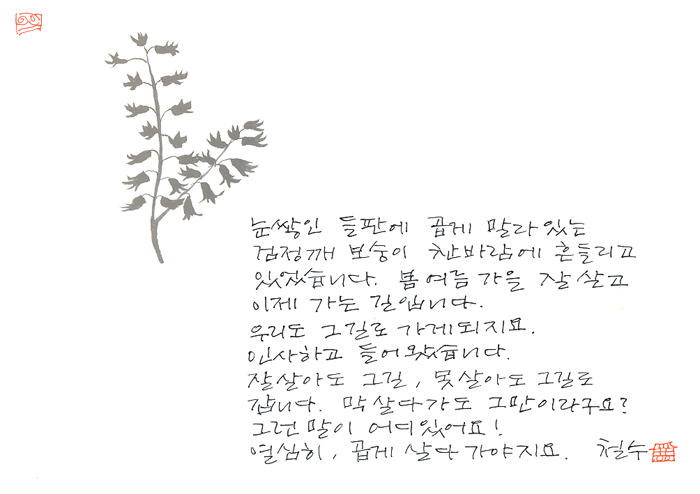 눈쌓인 들판에 곱게 말라있는
검정깨 보숭이 찬바람에 흔들리고
있었습니다. 봄 여름 가을 잘 살고
이제 가는 길입니다.
우리도 그길로 가게되지요.
인사하고 들어왔습니다.
잘살아도 그길, 못살아도 그길로
갑니다. 막 살다가도 그만이라구요?
그런 말이 어디있어요!
열심히, 곱게 살다 가야지요. 철수